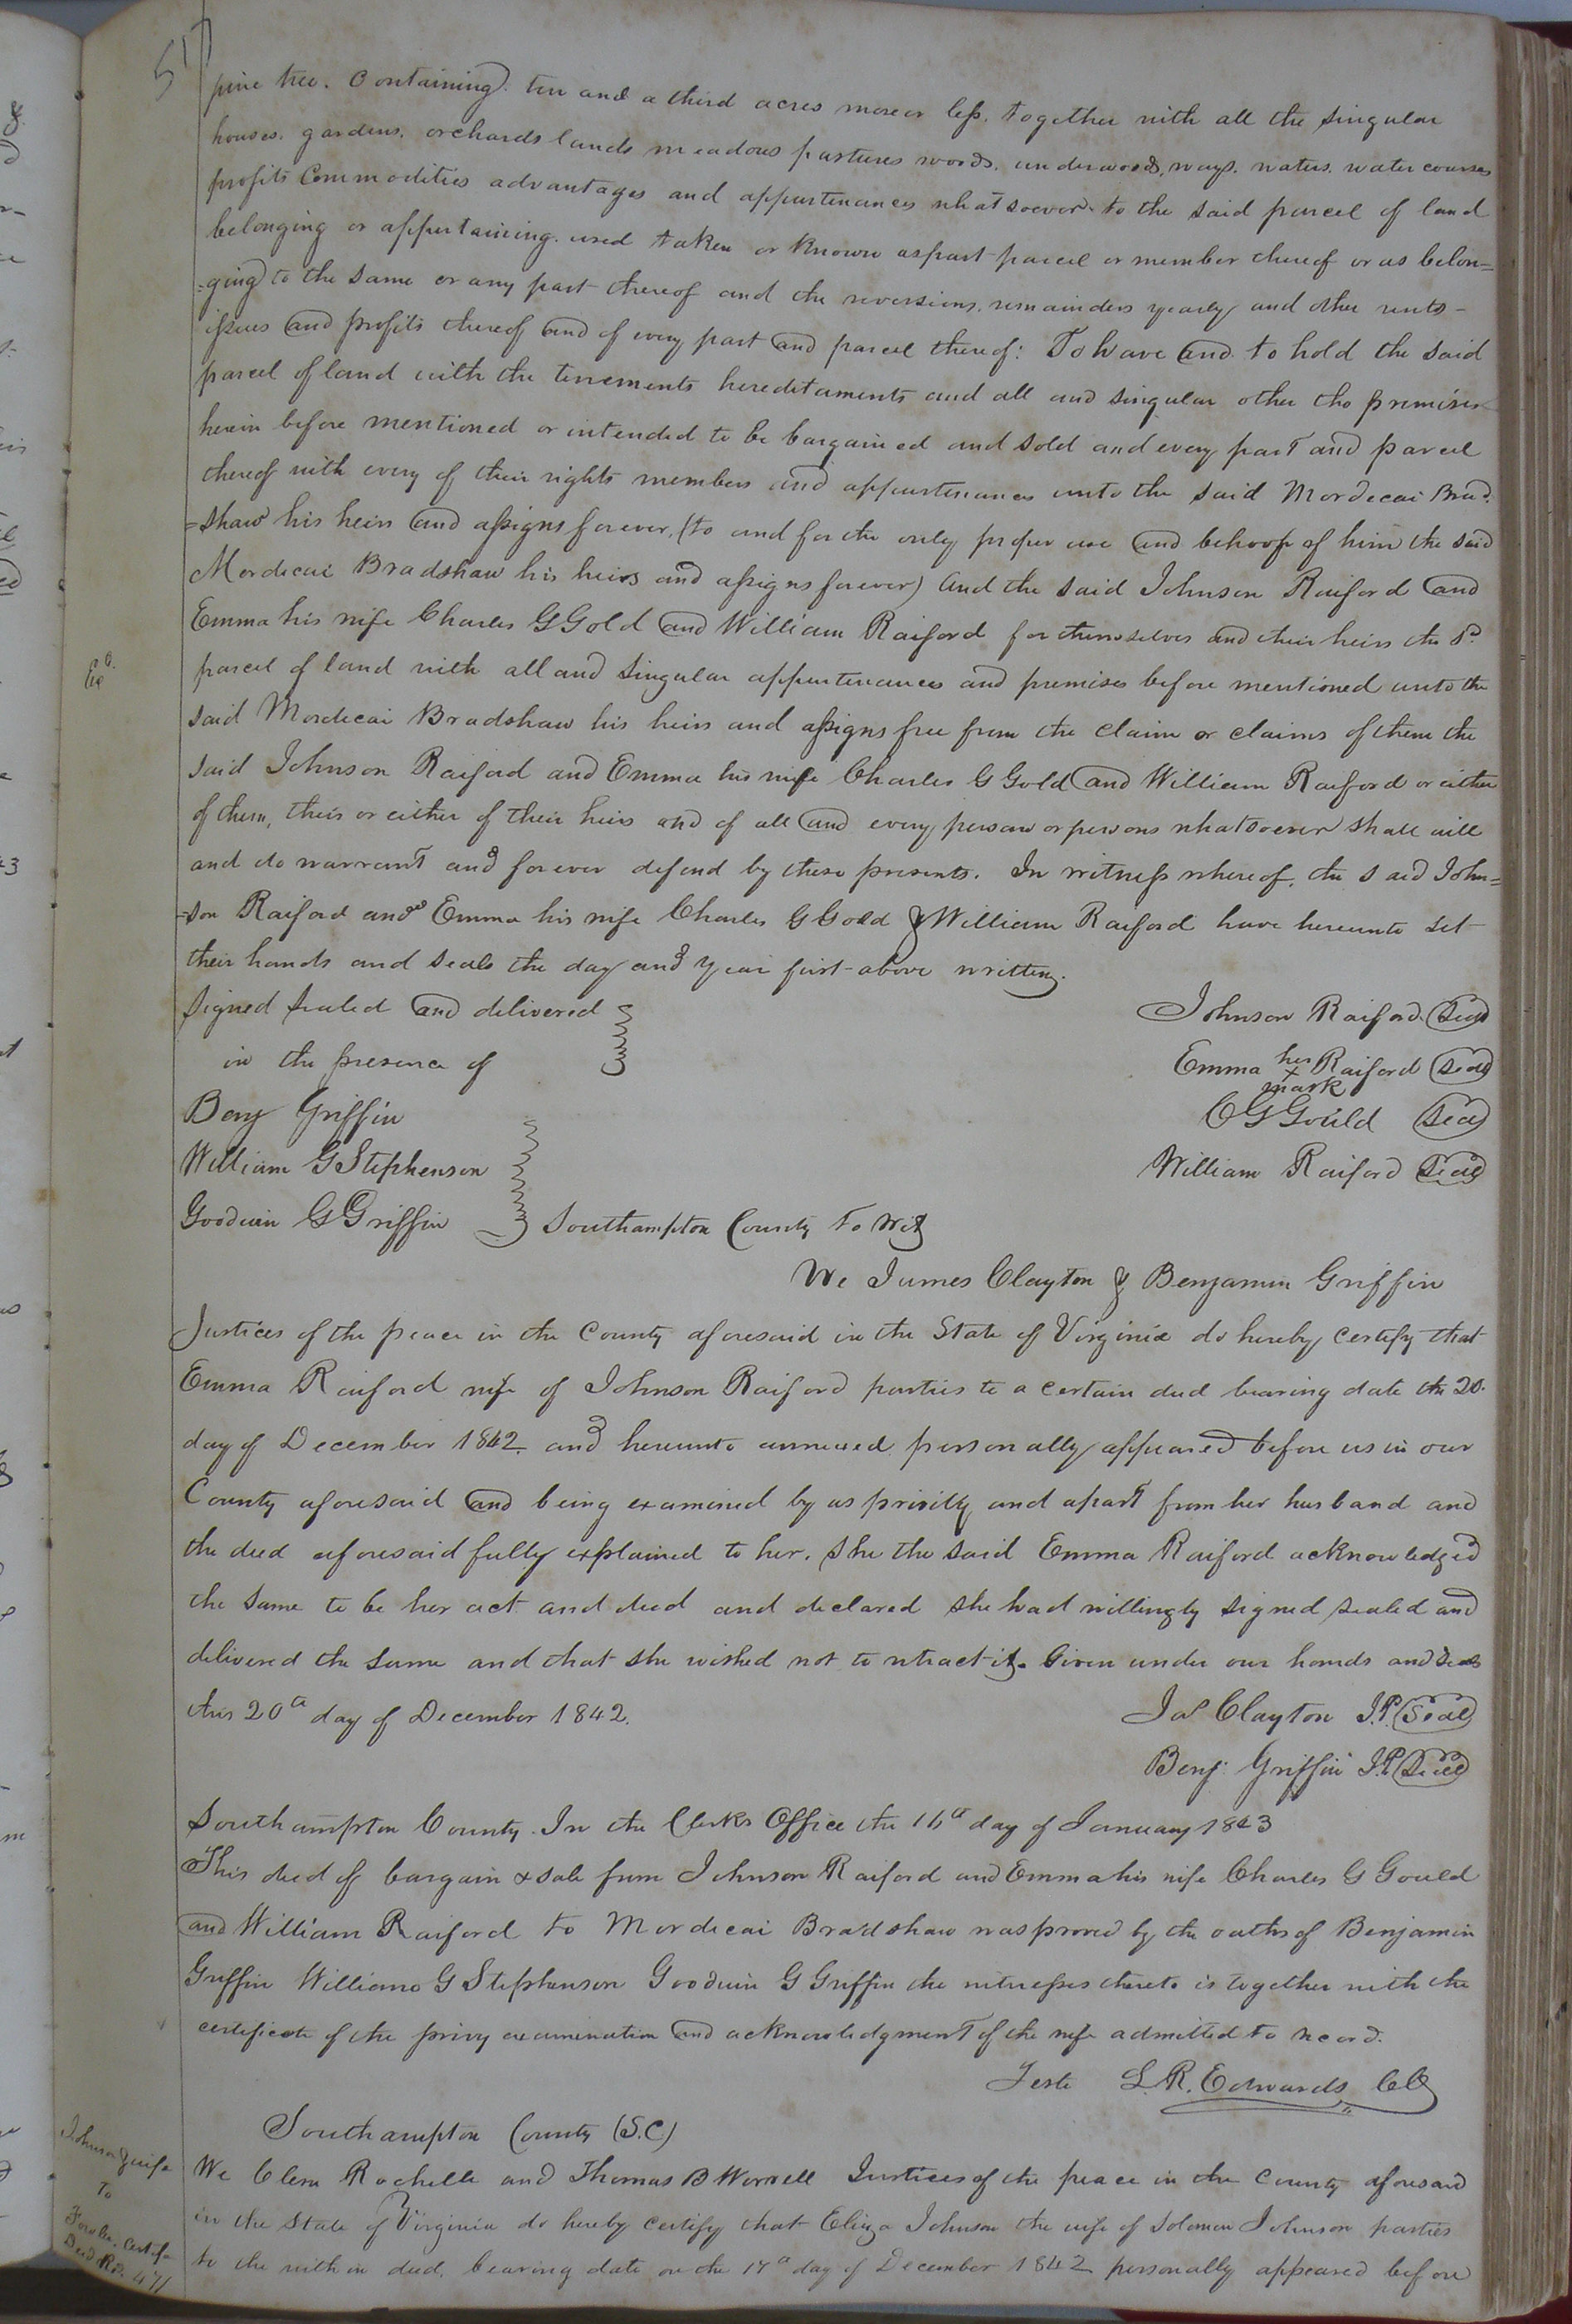 517
pine tree. Containing ten and a third acres more or less, together with all the singular
houses. gardens. orchards lands meadows pastures woods. underwoods, ways. waters. water courses
profits Commodities advantages and appurtenances whatsoever to the said parcel of land
belonging or appertaining. used taken or known as part parcel or member thereof or as belon=
=ging to the same or any part thereof and the reversions, remainders yearly and other rents-
issues and profits thereof and of every part and parcel thereof: To have and to hold the said
parcel of land with the tenements hereditaments and all and singular other the premises
herein before mentioned or intended to be bargained and sold and every part and parcel
thereof with every of their rights members and appurtenances unto the said Mordecai Brad.
=shaw his heirs and assigns forever, (to and for the only proper use and behoof of him the said
Mordecai Bradshaw his heirs and assigns forever) And the said Johnson Raiford and
Emma his wife Charles G Gold and William Raiford for themselves and their heirs the sd.
parcel of land with all and singular appurtenances and premises before mentioned unto the
said Mordecai Bradshaw his heirs and assigns free from the claim or claims of them the
said Johnson Raiford and Emma his wife Charles G Gold and William Raiford or either
of them, their or either of their heirs and of all and every person or persons whatsoever shall will
and do warrant and forever defend by these presents. In witness whereof, the said John=
=son Raiford and Emma his wife Charles G Gold & William Raiford have hereunto set
their hands and seals the day and year first above written.
Signed sealed and delivered
in the presence of
Johnson Raiford. Seal
Emma her x mark Raiford Seal
Benj Griffin
C G Gould Seal
William G Stephenson
William Raiford Seal
Goodwin G Griffin
Southampton County To Wit
We James Clayton & Benjamin Griffin
Justices of the peace in the County aforesaid in the State of Virginia do hereby certify that
Emma Raiford wife of Johnson Raiford parties to a certain deed bearing date the 20.
day of December 1842 and hereunto annexed personally appeared before us in our
County aforesaid and being examined by us privily and apart from her husband and
the deed aforesaid fully explained to her. She the said Emma Raiford acknowledged
the same to be her act and deed and declared she had willingly signed sealed and
delivered the same and that she wished not to retract it. Given under our hands and seals
this 20th day of December 1842.
Jas Clayton J.P. Seal
Benj. Griffin J.P. Seal
Southampton County. In the Clerks Office the 16th day of January 1843
This deed of bargain & sale from Johnson Raiford and Emma his wife Charles G Gould
and William Raiford to Mordecai Bradshaw was proved by the oaths of Benjamin
Griffin William G Stephenson Goodwin G Griffin the witnesses thereto is together with the
certificate of the privy examination and acknowledgment of the wife admitted to record.
Teste L. R. Edwards CC
Southampton County (S.C)
Johnson & wife
To
Fowler. Certife
Deed. Rd. 471
We Clem Rochelle and Thomas B Worrell Justices of the peace in the County aforesaid
in the State of Virginia do hereby certify that Eliza Johnson the wife of Solomon Johnson parties
to the within deed. bearing date on the 17th day of December 1842 personally appeared before